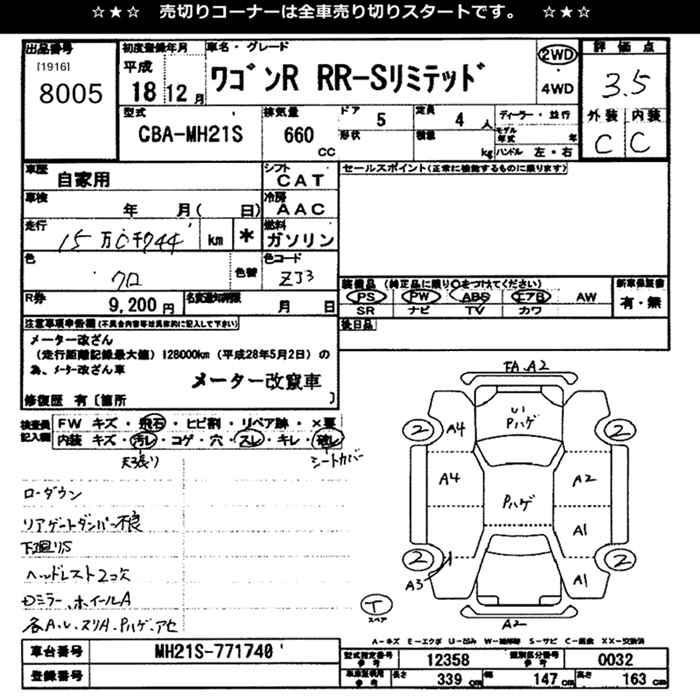 ☆★☆ 売切りコーナーは全車売り切りスタートです。 ☆★☆
出品番号 初度登録年月 車名・グレード 2WD 評価点
[1916] 平成 ワゴンR RR-Sリミテッド 4WD 3.5
8005 18 12 月
型式 排気量 ドア 5 定員 4 人 ディーラー・並行 外装 内装
CBA-MH21S 660 CC 形状 積載 kg モデル年式 年 C C
ハンドル 左・右
車歴 自家用 シフト CAT セールスポイント(正常に機能するものに限ります)
車検 年 月( 日) 冷房 AAC
走行 15万0千744 km * 燃料 ガソリン
色 クロ 色替 色コード ZJ3 装備品 (純正品に限り○をつけてください) 新車保証書
PS PW ABS エアB AW 有・無
SR ナビ TV カワ
R券 9,200 円 名変通知期限 月 日 後日品
注意事項申告欄(不具合内容等は具体的に記入して下さい)
メーター改ざん
(走行距離記録最大値)128000km(平成28年5月2日)の
為、メーター改ざん車
メーター改竄車
修復歴 有〔箇所 〕
検査員記入欄 FW キズ・飛石・ヒビ割・リペア跡・×要
内装 キズ・汚レ・コゲ・穴・スレ・キレ・破レ
天張り シートカバー
ローダウン
リアゲートダンパー不良
下廻りS
ヘッドレスト2コ欠
Dミラー、ホイールA
各A.U、スリA.Pハゲ.アセ
FA.A2
U1
Pハゲ
2 A4 2
A4 Pハゲ A2
A1
2 2
A3 A1
T
スペア A2
A-キズ E-エクボ U-凹み W-補修跡 S-サビ C-腐食 XX-交換済
車台番号 MH21S-771740 型式指定番号 参考 12358 類別区分番号 参考 0032
登録番号 車庫証明用 参考 長さ 339 cm 幅 147 cm 高さ 163 cm